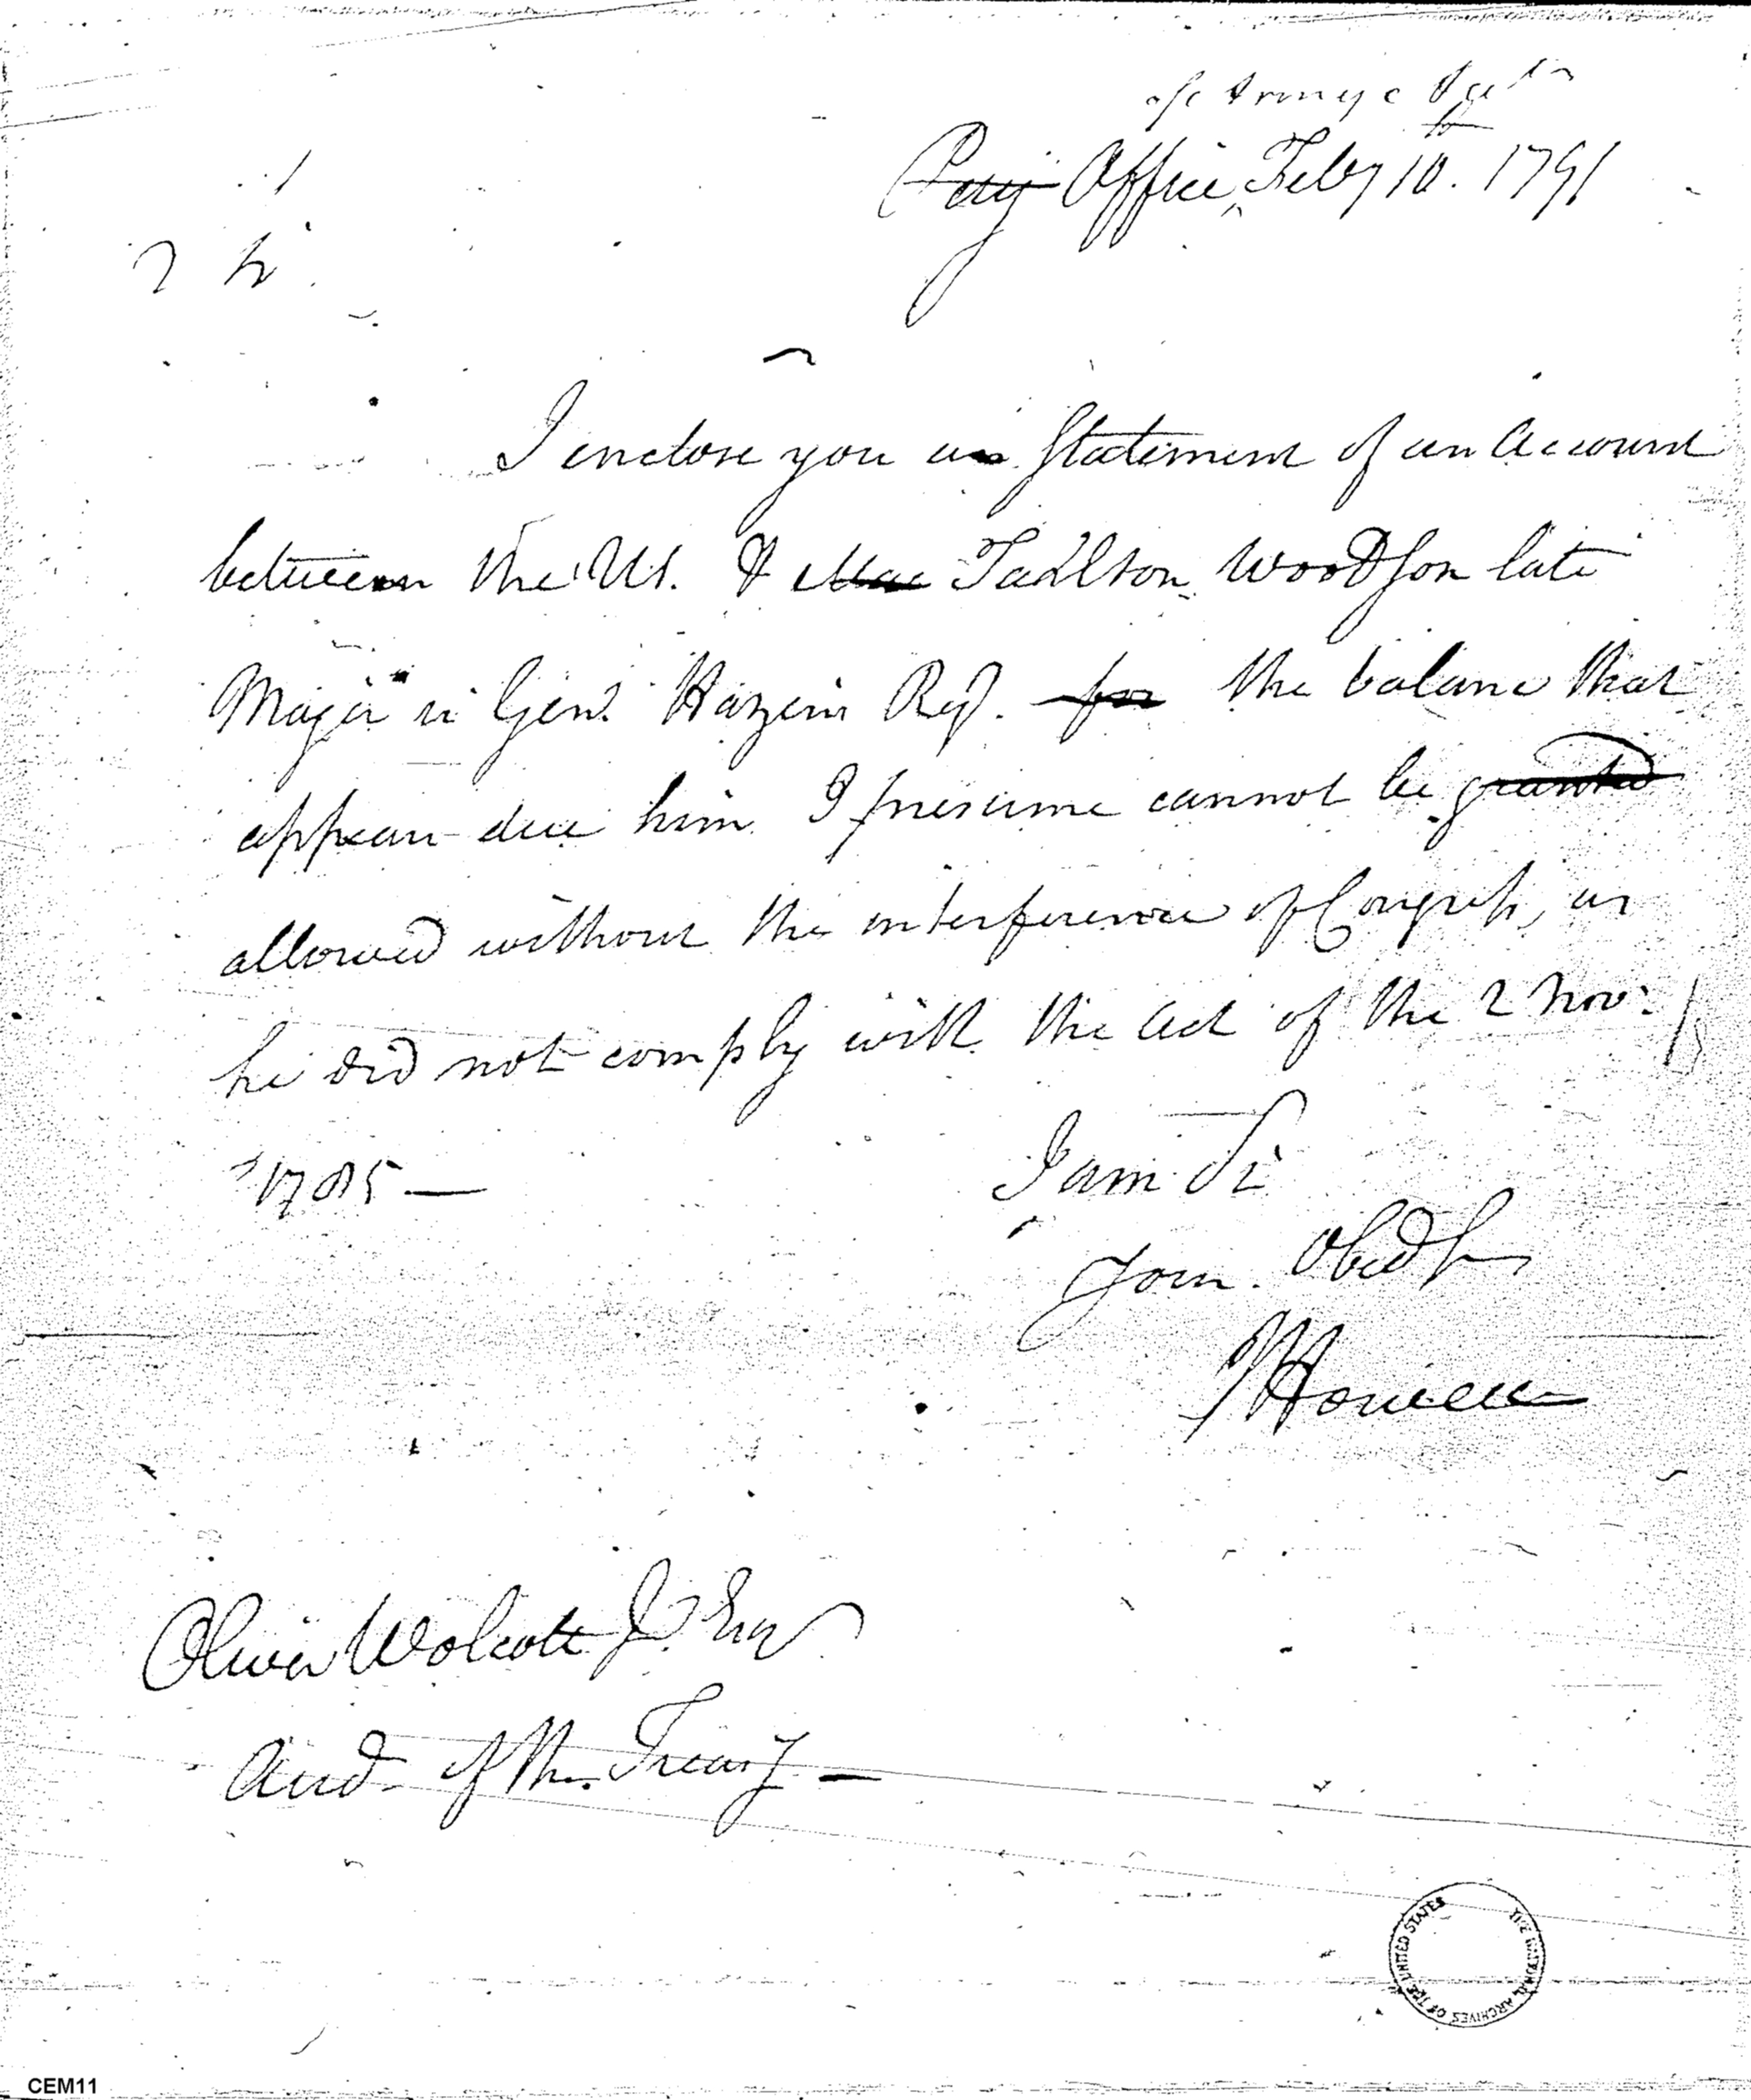 Pay Office, Feby 10. 1791
I enclose you a Statement of an Account
between the US. & Tarlton Woodson late
Major in Genl Hazen's Regt. for the balance that
appear due him I presume cannot be granted
allowed without the interference of Congress, as
he did not comply with the Act of the 2 Nov:
1785 —
I am Sir
Your. Obed
JHowell
Oliver Wolcott Jr. Esq
Aud of the Treasy —
THE NATIONAL ARCHIVES OF THE UNITED STATES
CEM11